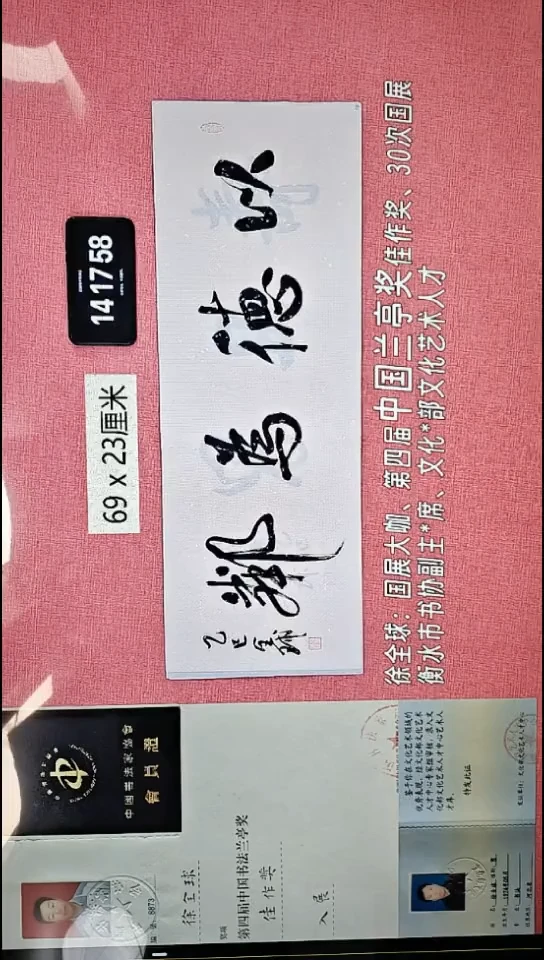 14 17 58
69 x 23厘米
以德為鄰
乙巳全球
徐全球：国展大咖、第四届中国兰亭奖佳作奖、30次国展
衡水市书协副主*席、文化*部文化艺术人才
中国书法家协会
會員證
8873
徐全球
第四届中国书法兰亭奖
佳作奖
入展
特发此证